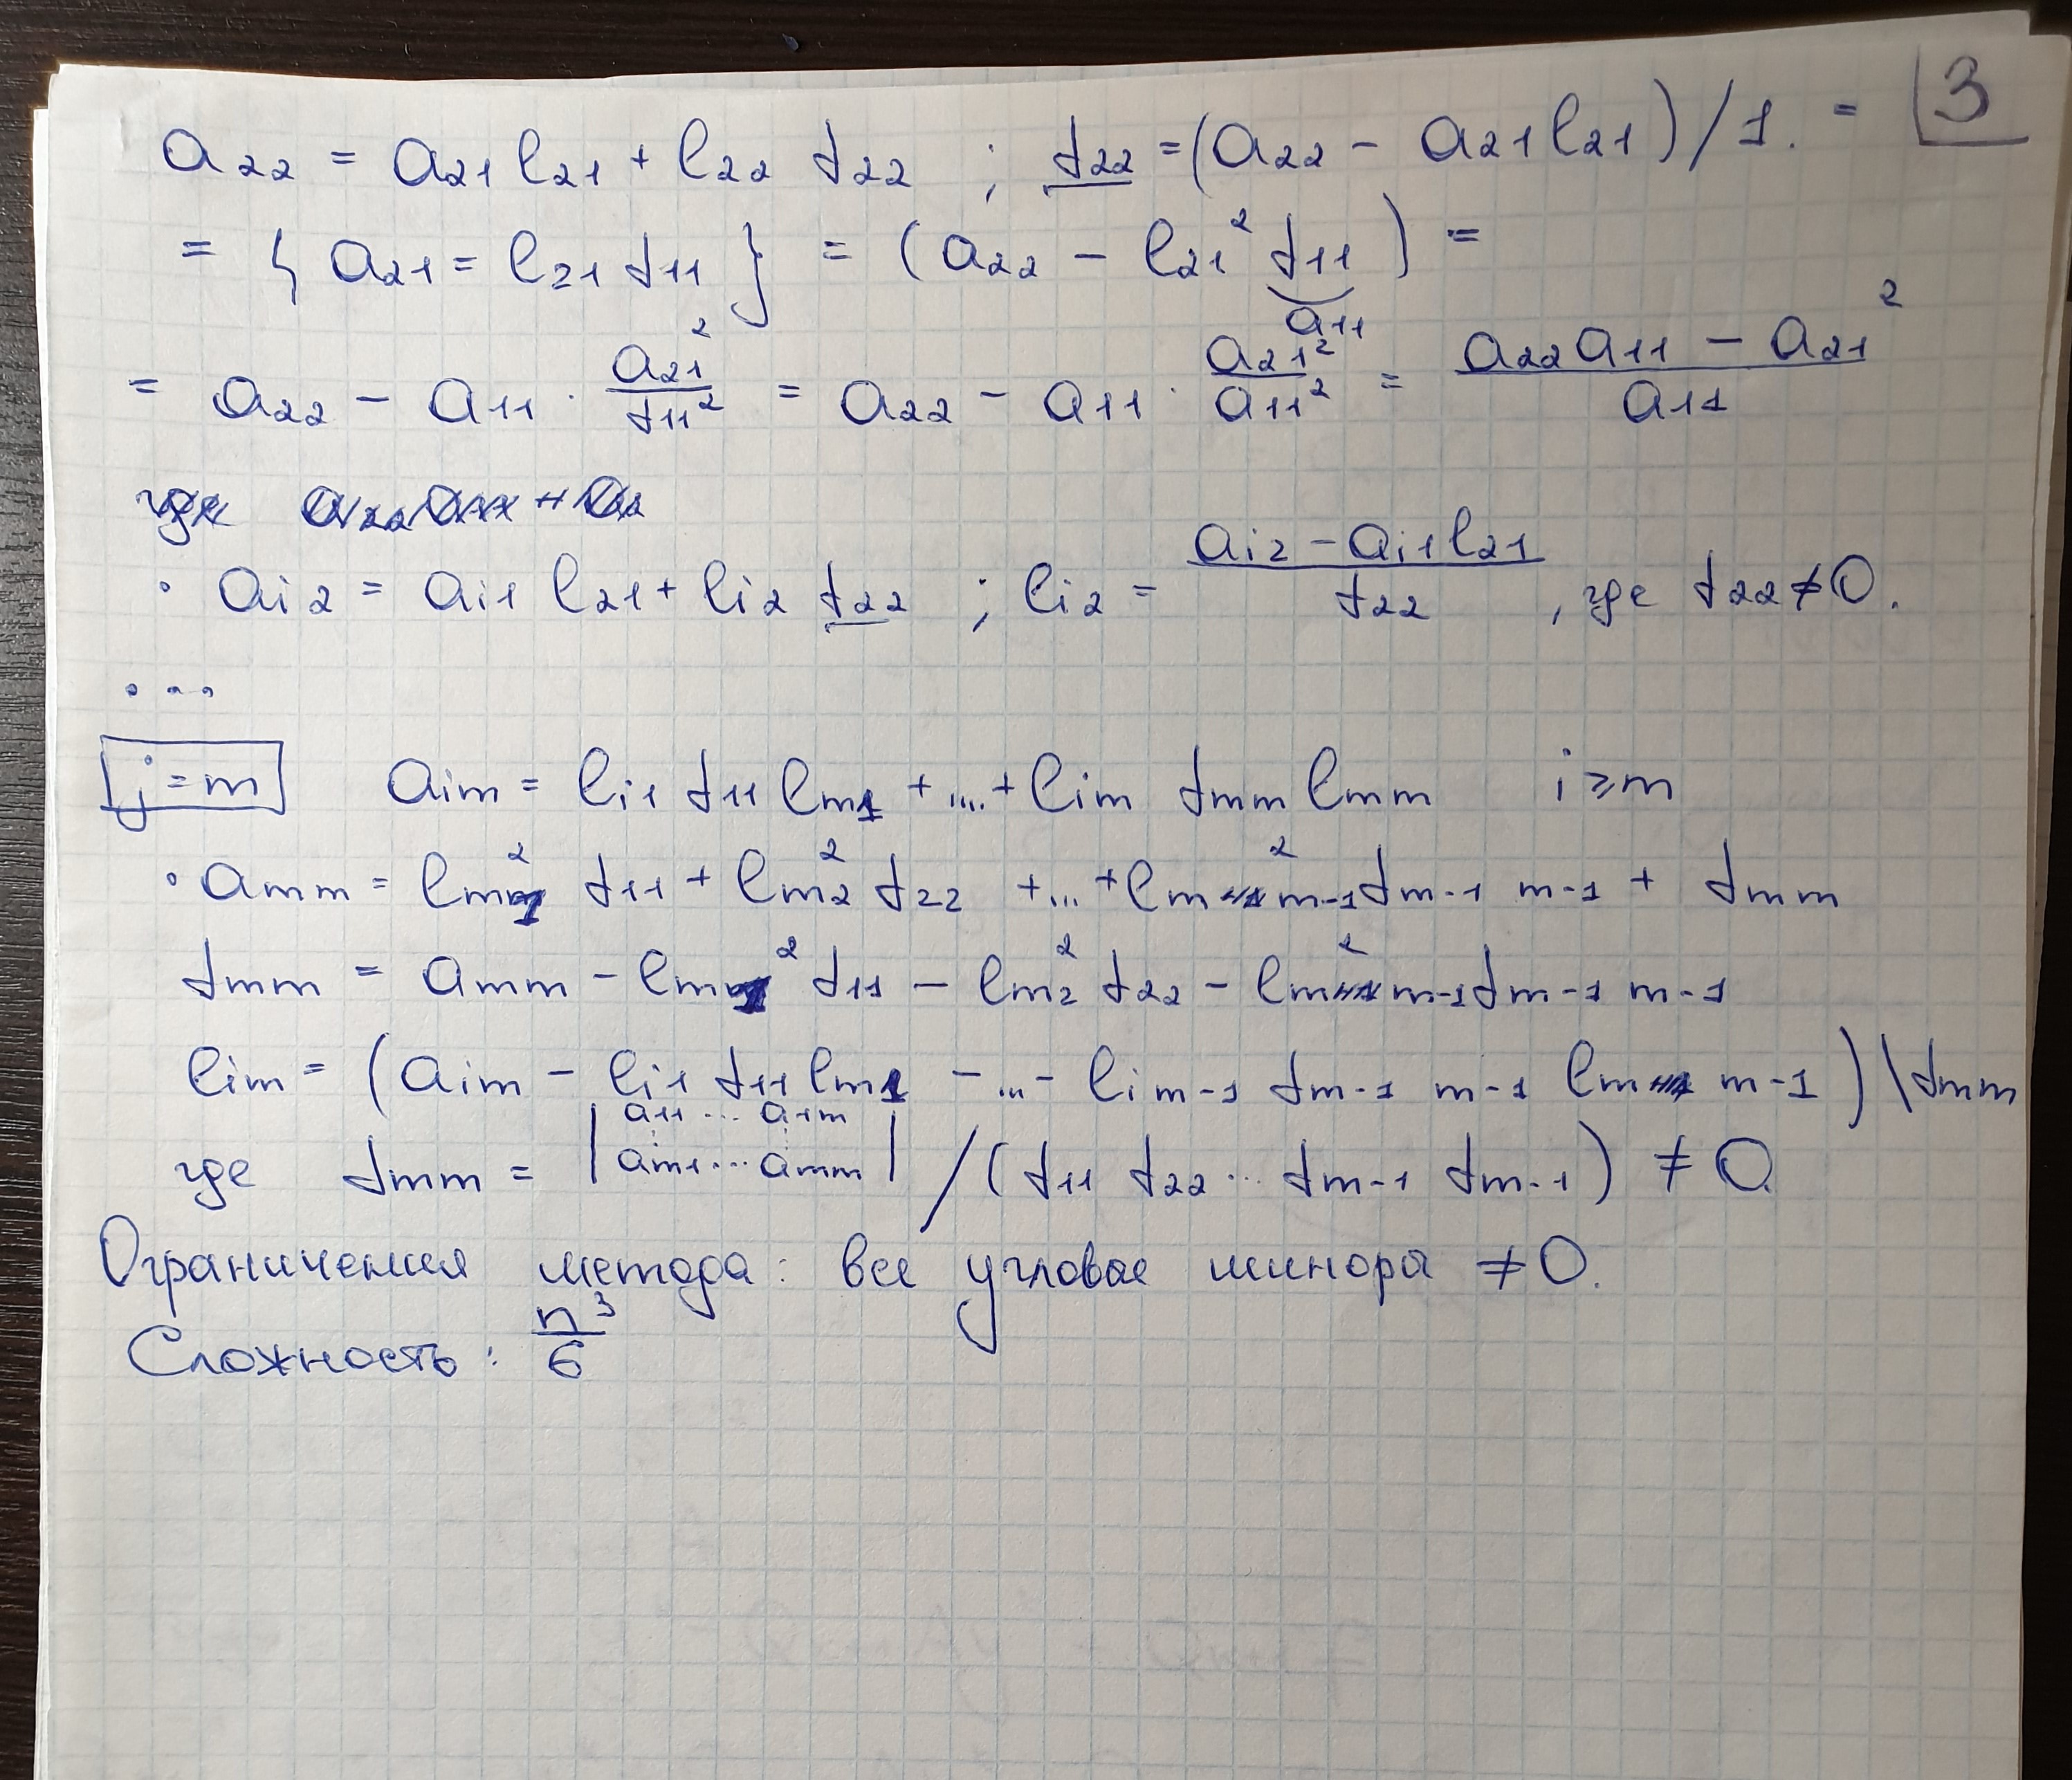 3
a₂₂ = a₂₁ l₂₁ + l₂₂ t₂₂ ; t₂₂ = (a₂₂ - a₂₁ l₂₁) / 1. =
= { a₂₁ = l₂₁ t₁₁ } = (a₂₂ - l₂₁² t₁₁) =
a₁₁
= a₂₂ - a₁₁ · a₂₁²/t₁₁² = a₂₂ - a₁₁ · a₂₁²/a₁₁² = (a₂₂ a₁₁ - a₂₁²)/a₁₁
• aᵢ₂ = aᵢ₁ l₂₁ + lᵢ₂ t₂₂ ; lᵢ₂ = (aᵢ₂ - aᵢ₁ l₂₁)/t₂₂ , где t₂₂ ≠ 0.
...
j = m aim = li1 t11 lm1 + ... + lim tmm lmm i ≥ m
• amm = lm1² t11 + lm2² t22 + ... + lm m-1² tm-1 m-1 + tmm
tmm = amm - lm1² t11 - lm2² t22 - lm m-1² tm-1 m-1
lim = (aim - li1 t11 lm1 - ... - li m-1 tm-1 m-1 lm m-1) \ tmm
где tmm = | a11 ... a1m
am1 ... amm | / (t11 t22 ... tm-1 tm-1) ≠ 0
Ограничения метода: все угловые миноры ≠ 0.
Сложность: n³/6